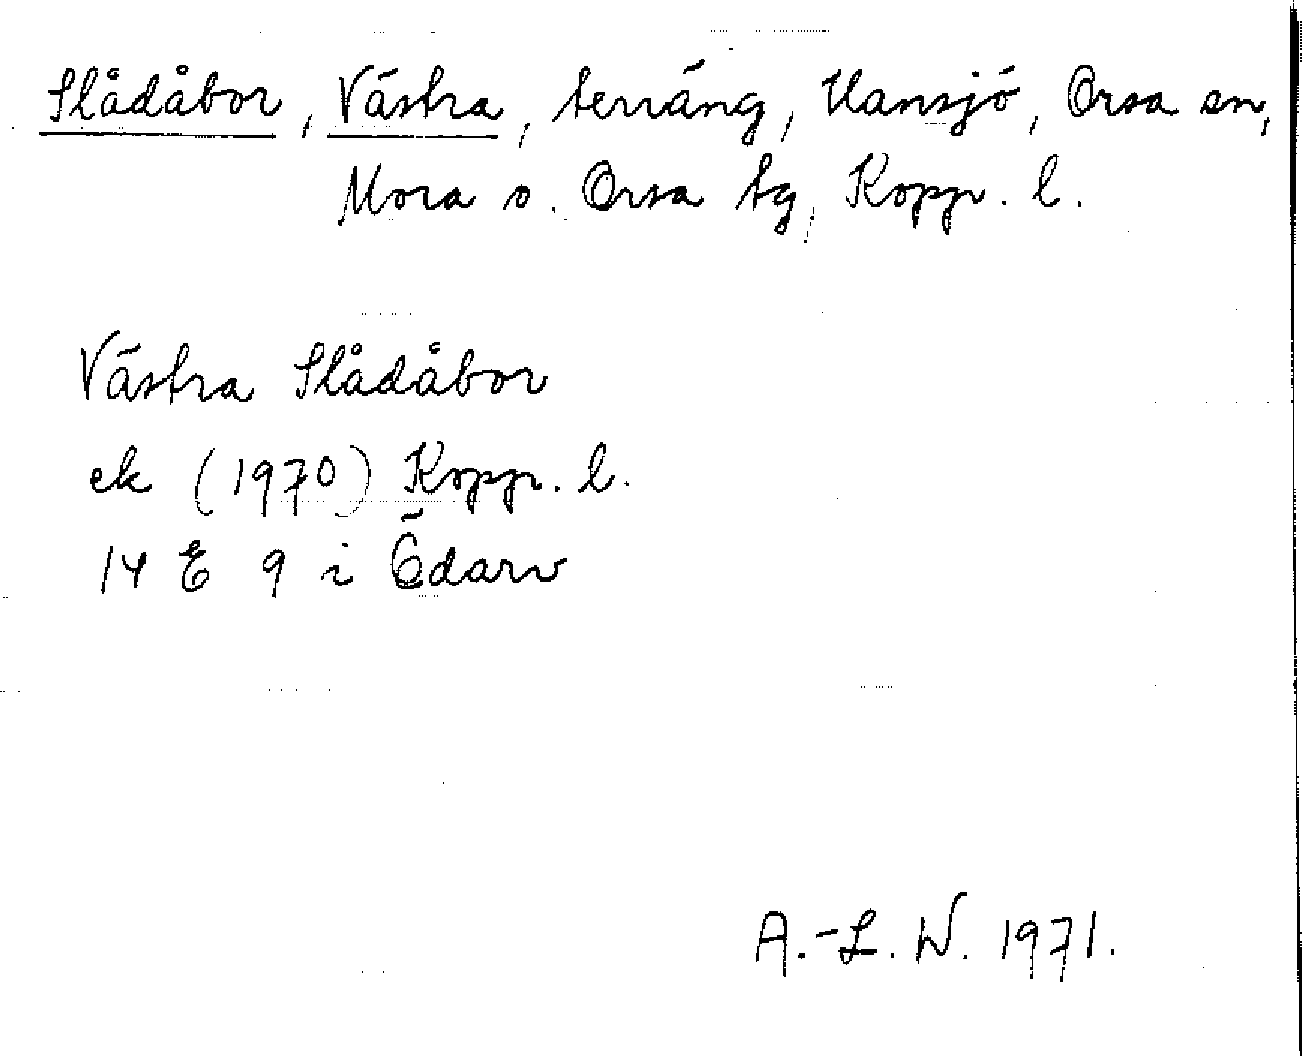 Slådåbor, Västra, terräng, Hansjö, Orsa sn,
Mora o. Orsa tg, Kopp. l.
Västra Slådåbor
ek (1970) Kopp. l.
14 E 9 i Ödarv
A.-L. W. 1971.